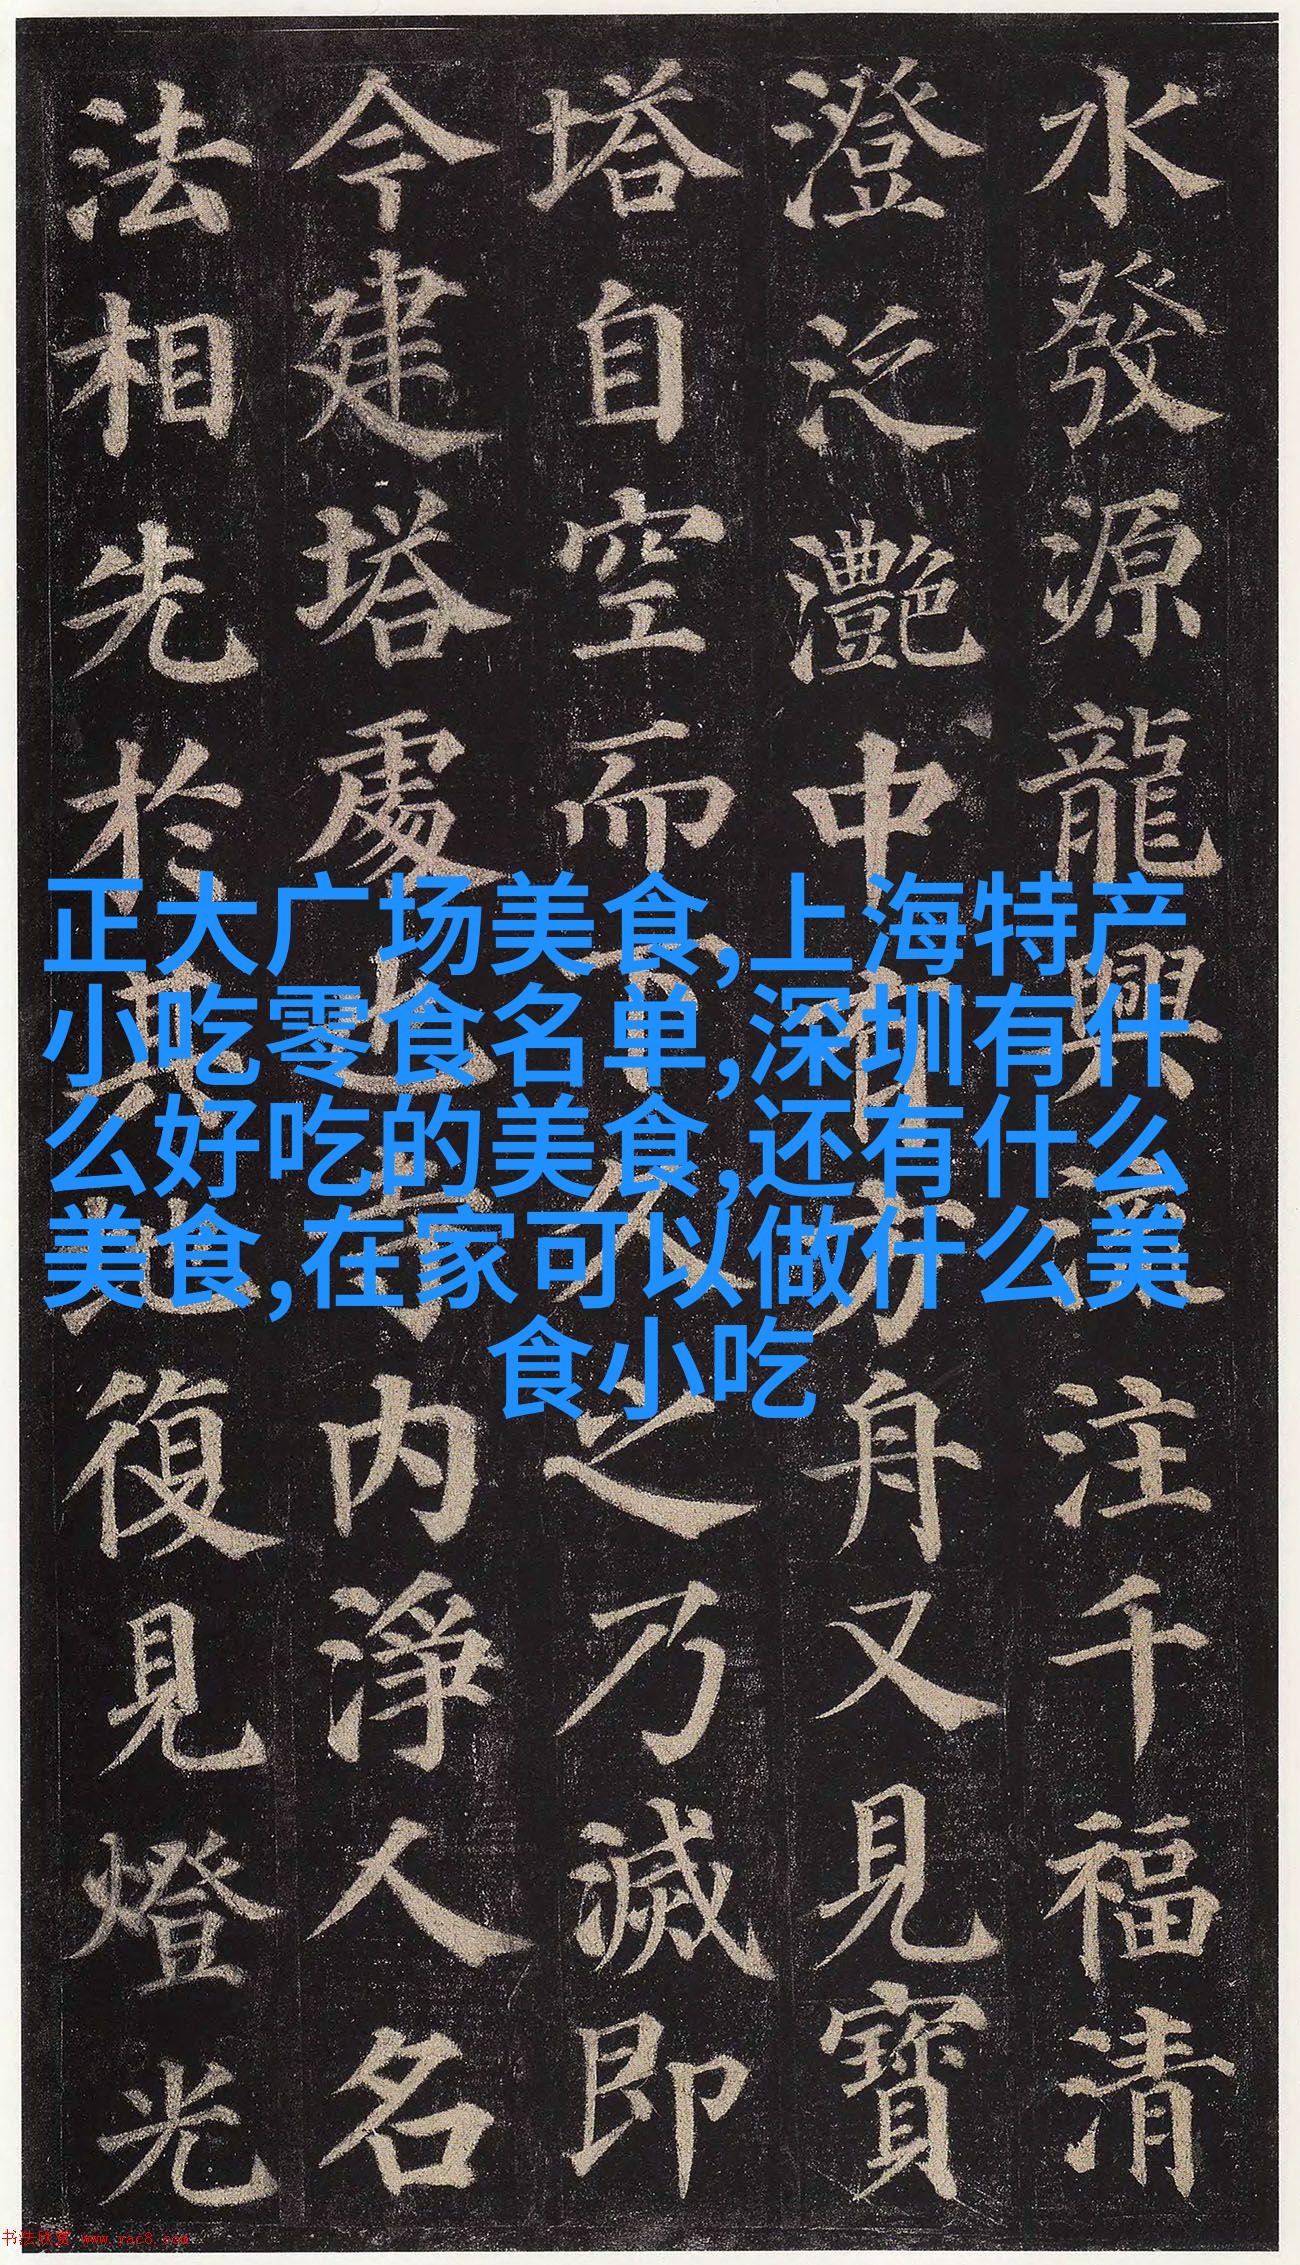 水發源龍興流注千福清
澄泛灧中有方舟又見寶
塔自空而下久之乃滅即
今建塔處也寺内淨人名
法相先於其地復見燈光
正大广场美食,上海特产
小吃零食名单,深圳有什
么好吃的美食,还有什么
美食,在家可以做什么美
食小吃
书法欣赏 www.yac8.com